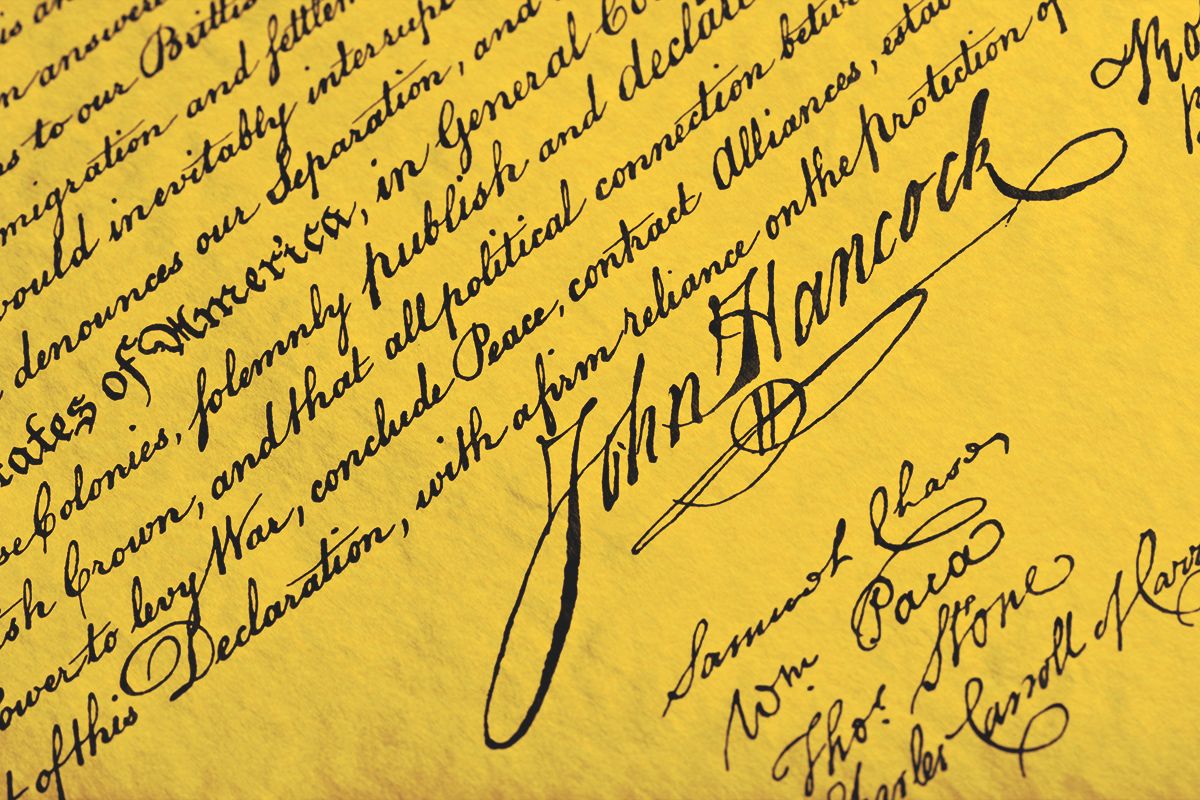 is an
n answere
ns to our Brittis
migration and ſettlem
would inevitably interrupt
denounces our Separation, and
tates of America, in General Co
se Colonies, ſolemnly publish and declare
ish Crown, and that all political connection betw
ower to levy War, conclude Peace, contract Alliances, esta
t of this Declaration, with a firm reliance on the protection of
John Hancock
Ro
Samuel Chase
Wm. Paca
Thos. Stone
harles Carroll of Carro